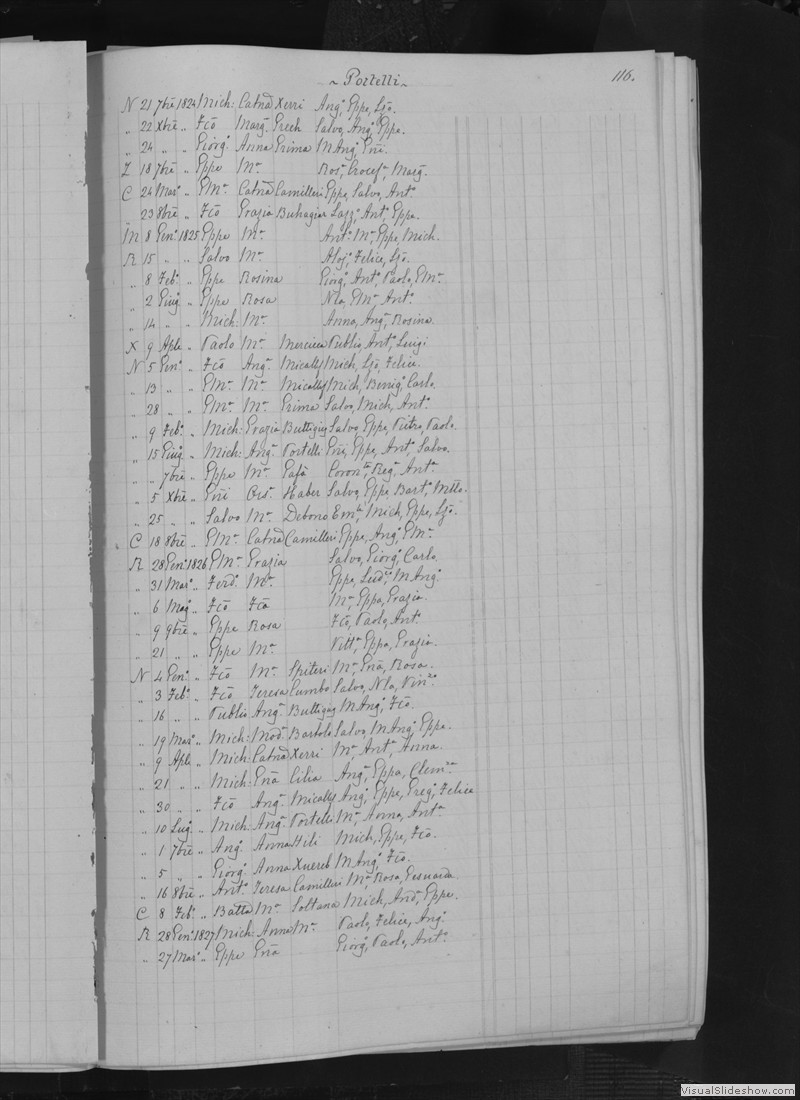 ~ Portelli ~
116.
N 21 7bre 1824 Mich: Catnā Xerri Angᵒ, Eppe, Ljō.
„ 22 Xbre „ Fcō Margᵃ Grech Salvo, Angᵒ, Eppe.
„ 24 „ „ Giorgᵒ Anna Grima M Angᵒ, Gnī.
Z 18 7bre „ Eppe Mᵃ Rosᵃ, Crocefᵃ, Margᵃ.
C 24 Marᵒ „ GMᵃ Catnā Camilleri Eppe, Salvo, Antᵒ
23 8bre „ Fcō Grazia Buhagiar Lazzᵒ, Antᵒ, Eppa.
M 8 Genᵒ 1825 Eppe Mᵃ Antᵒ Mᵃ, Eppe, Mich.
R 15 „ „ Salvo Mᵃ Alojᵒ, Felice, Ljō.
„ 8 Febᵒ „ Eppe Rosina Giorgᵒ, Antᵒ, Paolo, GMᵃ
„ 2 Giugᵒ „ Eppe Rosa Nla, GMᵃ, Antᵒ
„ 14 „ „ Mich: Mᵃ Anna, Angᵃ, Rosina.
X 9 Aple „ Paolo Mᵃ Mercieca Publio, Antᵒ, Luigi
N 5 Genᵒ „ Fcō Angᵃ Micallef Mich, Ljō, Felice.
„ 13 „ „ GMᵃ Mᵃ Micallef Mich, Benigᵒ, Carlo.
„ 28 „ „ GMᵃ Mᵃ Grima Salvo, Mich, Antᵒ
„ 9 Febᵒ „ Mich: Grazia Buttigieg Salvo, Eppe, Pietro, Paolo.
„ 15 Giugᵒ „ Mich: Angᵃ Portelli Gnī, Eppe, Antᵒ, Salvo.
„ „ 7bre „ Eppe Mᵃ Gafà Coronᵗᵃ, Regᵃ, Antᵃ
„ 5 Xbre „ Gnī Orsᵃ Haber Salvo, Eppe, Bartᵒ, Mttō.
„ 25 „ „ Salvo Mᵃ Debono Emˡᵉ, Mich, Eppe, Ljō.
C 18 8bre „ GMᵃ Catnā Camilleri Eppe, Angᵒ, GMᵃ
R 28 Genᵒ 1826 GMᵃ Grazia Salvo, Giorgᵒ, Carlo.
„ 31 Marᵒ „ Ferdᵒ Mᵃ Eppe, Ludᶜᵒ, M Angᵒ
„ 6 Magᵒ „ Fcō Fcā Mᵃ, Eppa, Grazia.
„ 9 9bre „ Eppe Rosa Fcō, Paolo, Antᵒ
„ 21 „ „ Eppe Mᵃ Vittᵃ, Eppa, Grazia.
N 4 Genᵒ „ Fcō Mᵃ Spiteri Mᵃ, Gnā, Rosa.
„ 3 Febᵒ „ Fcō Teresa Cumbo Salvo, Nla, Vinᶻᵒ
„ 16 „ „ Publio Angᵃ Buttigieg M Angᵒ, Fcō.
„ 19 Marᵒ „ Mich: Modᵃ Bartolo Salvo, M Angᵒ, Eppe.
„ 9 Aple „ Mich: Catnā Xerri Mᵃ, Antᵃ, Anna.
„ 21 „ „ Mich: Gnā Cilia Angᵃ, Eppa, Clemᶻᵃ
„ 30 „ „ Fcō Angᵃ Micallef Angᵒ, Eppe, Gregᵒ, Felice
„ 10 Lugᵒ „ Mich: Angᵃ Portelli Mᵃ, Anna, Antᵃ
„ 1 7bre „ Angᵒ Anna Hili Mich, Eppe, Fcō.
„ 5 „ „ Giorgᵒ Anna Xuereb M Angᵒ, Fcō.
„ 16 8bre „ Antᵒ Teresa Camilleri Mᵃ, Rosa, Gesualda.
C 8 Febᵒ „ Batta Mᵃ Soltana Mich, Andᵃ, Eppe.
R 28 Genᵒ 1827 Mich: Anna Mᵃ Paolo, Felice, Angᵒ
„ 27 Marᵒ „ Eppe Gnā Giorgᵒ, Paolo, Antᵒ
VisualSlideshow.com